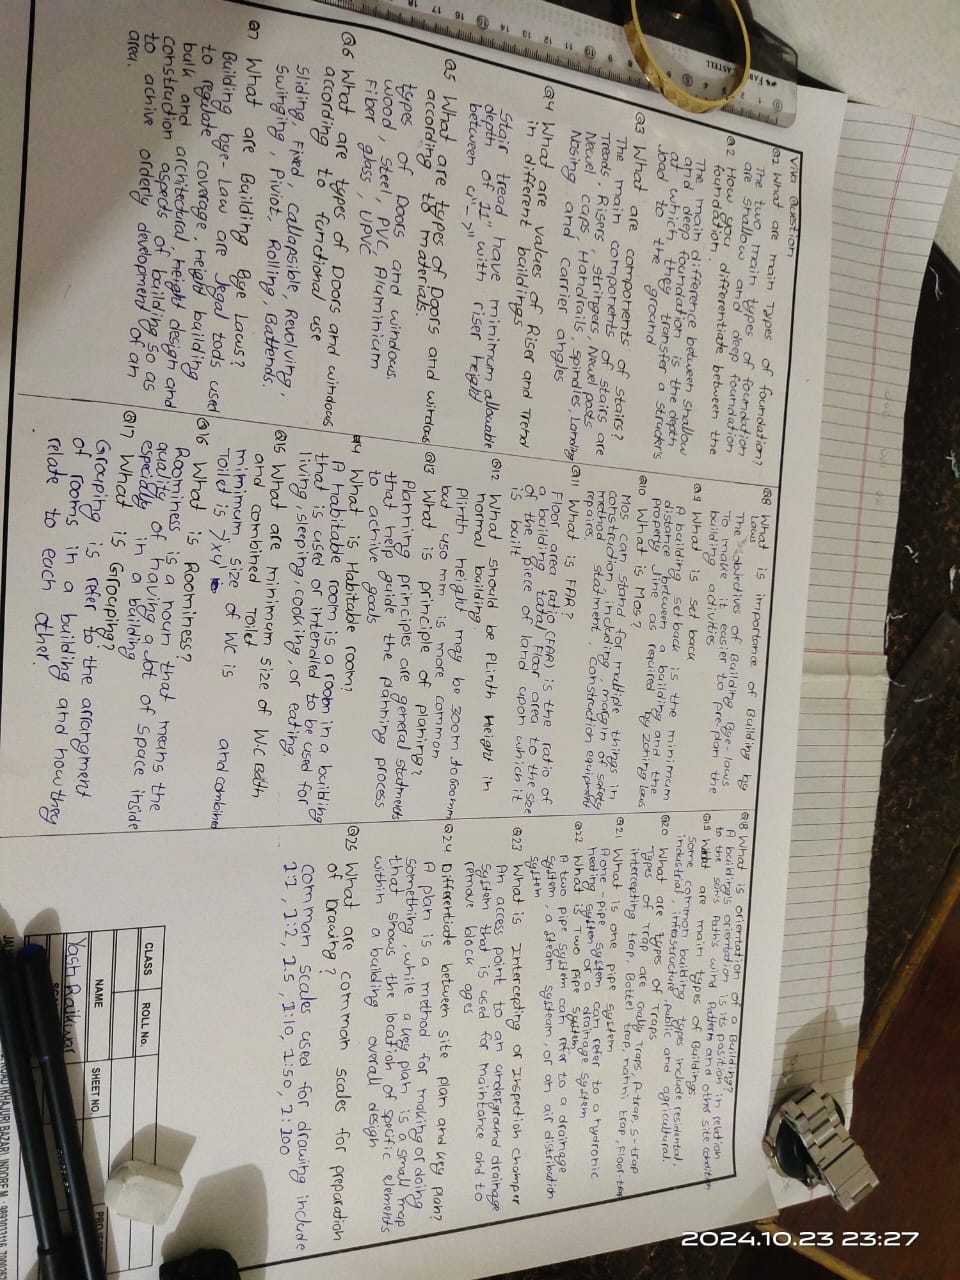 Viva Question
Q2 What are main Types of foundation?
The two main types of foundation
are shallow and deep foundation
Q2 How you differentiate between the
foundation.
The main difference between shallow
and deep foundation is the depth
at which they transfer a structer's
load to the ground
Q3 What are components of stairs?
The main components of stairs are
Treads, Risers, stringers, Newel posts
Newel caps, Handrails, spindles, Landing
Nosing and carrier angles
Q4 What are values of Riser and Trend
in different buildings
Stair tread have minimum allowable
depth of 11" with riser height
between 4"-7"
Q5 What are types of Doors and windows
according to materials.
types of Doors and windows.
wood, Steel, PVC, Aluminium
Fiber glass, UPVC
Q6 What are types of Doors and windows
according to functional use
Sliding, Fixed, Callapsible, Revolving,
Swinging, Piviot, Rolling, Battends.
Q7 What are Building Bye Laws?
Building bye-Law are legal tods used
to regulate coverage, height building
bulk and architectural, height design and
construction aspects of building so as
to achive orderly development of an
area.
Q8 What is importance of Building by
Laws
The objectives of Building Bye-laws
To make it easier to pre-plan the
building activities
Q9 What is set back
A building setback is the minimum
distance between a building and the
property line as required by zoning laws
Q10 What is Mos?
Mos can stand for multiple things in
construction, including, margin of safety
method statment, construction equipment
repaires.
Q11 What is FAR?
Floor area ratio (FAR) is the ratio of
a building tatal floor area to the size
of the piece of land upon which it
is built
Q12 What should be PLinth Height in
normal building.
Plinth height may be 300m to 600mm
but 450 mm is more common
Q13 What is principle of planing?
Planning principles are general statments
that help guide the planning process
to achive goals
Q14 What is Habitable room?
A habitable room is a room in a building
that is used or intended to be used for
living, sleeping, cooking, or eating.
Q15 What are minimum size of W.C Bath
and combined Toilet
mimimum size of WC is and combined
Toilet is 7'x4'
Q16 What is Roominess?
Roominess is a noun that means the
quality of having a lot of space inside
especially in a building
Q17 What is Grouping?
Grouping is refer to the arrangment
of rooms in a building and how they
relate to each other.
Q18 What is orientation of a Building?
A building's orientation is its position in relation
to the sun's Path's wind Pattern and other site condition
Q19 What are main types of Buildings.
Some common building types include residental,
industrial, infrastructure, public and agricultural.
Q20 What are types of Traps
Types of Trap are Gully Traps, P-trap, S-trap
intercepting trap, Bottel trap, nahni trap, Floor-trap
Q21 What is one pipe system
A one-pipe system can refer to a hydronic
heating system or a drainage system
Q22 What is Two pipe system
A two pipe system can refer to a drainage
system, a steam systeam, or an air distribution
system
Q23 What is Intercepting or Inspection champer
An access point to an underground drainage
system that is used for maintance and to
remove block ages
Q24 Differentiate between site plan and key plan?
A plan is a method for making or doing
something, while a key plan is a small map
that shows the location of specific elements
within a building overall design
Q25 What are comman scales for preparation
of Drawing?
comman scales used for drawing include
1:1, 1:2, 1.5, 1:10, 1:50, 1:100
CLASS ROLL No.
NAME SHEET NO.
Yash Raikwar
ROAD (KHAJURI BAZAR), INDORE M.: 9893033116
2024.10.23 23:27